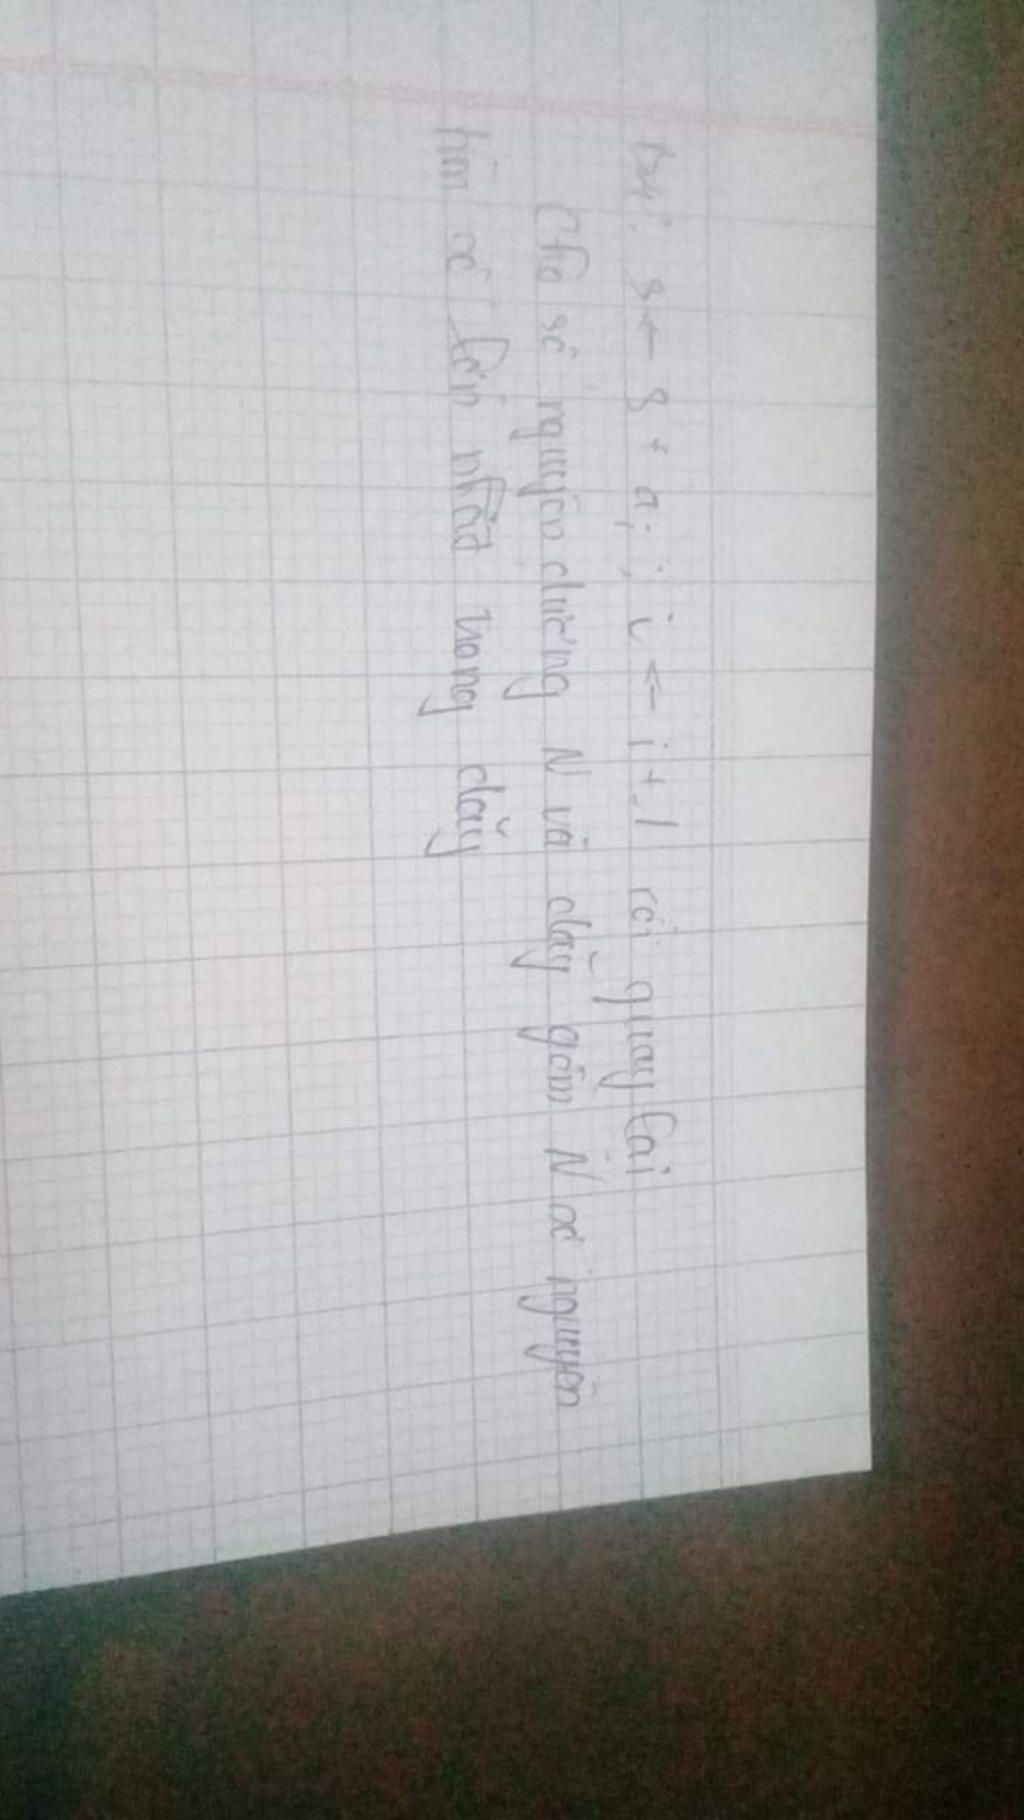 B4: S ← S + ai; i ← i + 1 rồi quay lại
Cho số nguyên dương N và dãy gồm N số nguyên
tìm số lớn nhất trong dãy